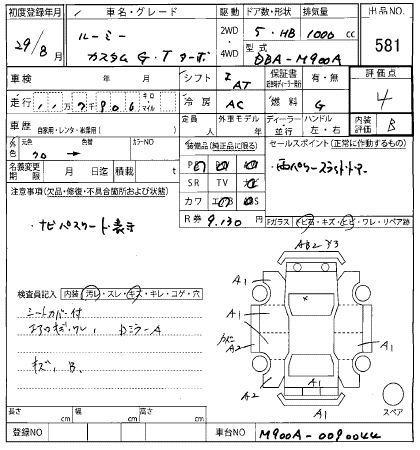 初度登録年月
車名・グレード
駆動
ドア数・形状
排気量
出品NO.
29/8月
ルーミー
カスタム G・T ターボ
2WD
4WD
5・HB
1000 cc
型式
DBA-M900A
581
車検 年 月
シフト
AT
保証書
有・無
評価点
4
走行
キロ
マイル
冷房
AC
燃料
G
車歴
自家用・レンタ・事業用( )
定員
外車モデル
ディーラー・並行
ハンドル
左・右
内装評価
B
外色
元色
色替
カラーNO
装備品(純正品に限る)
セールスポイント(正常に動作するもの)
名義変更期限
月 日迄
積載
t
SR
TV
カワ
R券
9,130
円
両パワースライドドアー
注意事項(欠品・修復・不具合箇所および状態)
ナビパスワード表示
Fガラス
トビ石・キズ・ヒビ・ワレ・リペア跡
検査員記入
内装
汚レ・スレ・キズ・キレ・コゲ・穴
シートカバー付
DミラーA
キズ、B、
AB2
Y3
A1
A1
A1
A2
A2
A1
A1
A1
スペア
長さ cm
幅 cm
高さ cm
登録NO
車台NO
M900A-0090044